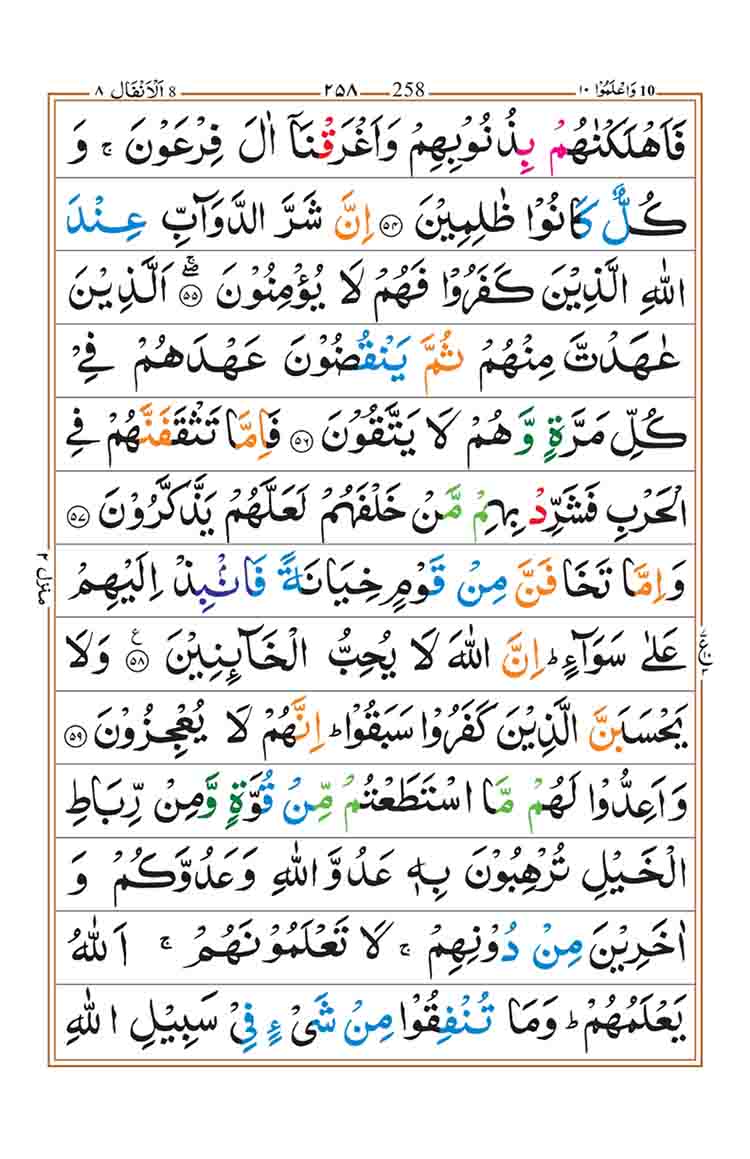 10 وَاعْلَمُوْٓا ١٠ 258 ٢٥٨ 8 اَلْاَنْفَال ٨
فَاَهْلَكْنٰهُمْ بِذُنُوْبِهِمْ وَاَغْرَقْنَآ اٰلَ فِرْعَوْنَ ۚ وَ
كُلٌّ كَانُوْا ظٰلِمِيْنَ ۝٥٤ اِنَّ شَرَّ الدَّوَآبِّ عِنْدَ
اللّٰهِ الَّذِيْنَ كَفَرُوْا فَهُمْ لَا يُؤْمِنُوْنَ ۝٥٥ۖۚ اَلَّذِيْنَ
عٰهَدْتَّ مِنْهُمْ ثُمَّ يَنْقُضُوْنَ عَهْدَهُمْ فِيْ
كُلِّ مَرَّةٍ وَّهُمْ لَا يَتَّقُوْنَ ۝٥٦ فَاِمَّا تَثْقَفَنَّهُمْ فِي
الْحَرْبِ فَشَرِّدْ بِهِمْ مَّنْ خَلْفَهُمْ لَعَلَّهُمْ يَذَّكَّرُوْنَ ۝٥٧
وَاِمَّا تَخَافَنَّ مِنْ قَوْمٍ خِيَانَةً فَانْۢبِذْ اِلَيْهِمْ
عَلٰى سَوَآءٍ ؕ اِنَّ اللّٰهَ لَا يُحِبُّ الْخَآئِنِيْنَ ۝٥٨ ع وَلَا
يَحْسَبَنَّ الَّذِيْنَ كَفَرُوْا سَبَقُوْا ؕ اِنَّهُمْ لَا يُعْجِزُوْنَ ۝٥٩
وَاَعِدُّوْا لَهُمْ مَّا اسْتَطَعْتُمْ مِّنْ قُوَّةٍ وَّمِنْ رِّبَاطِ
الْخَيْلِ تُرْهِبُوْنَ بِهٖ عَدُوَّ اللّٰهِ وَعَدُوَّكُمْ وَ
اٰخَرِيْنَ مِنْ دُوْنِهِمْ ۚ لَا تَعْلَمُوْنَهُمْ ۚ اَللّٰهُ
يَعْلَمُهُمْ ؕ وَمَا تُنْفِقُوْا مِنْ شَيْءٍ فِيْ سَبِيْلِ اللّٰهِ
منزل ٢